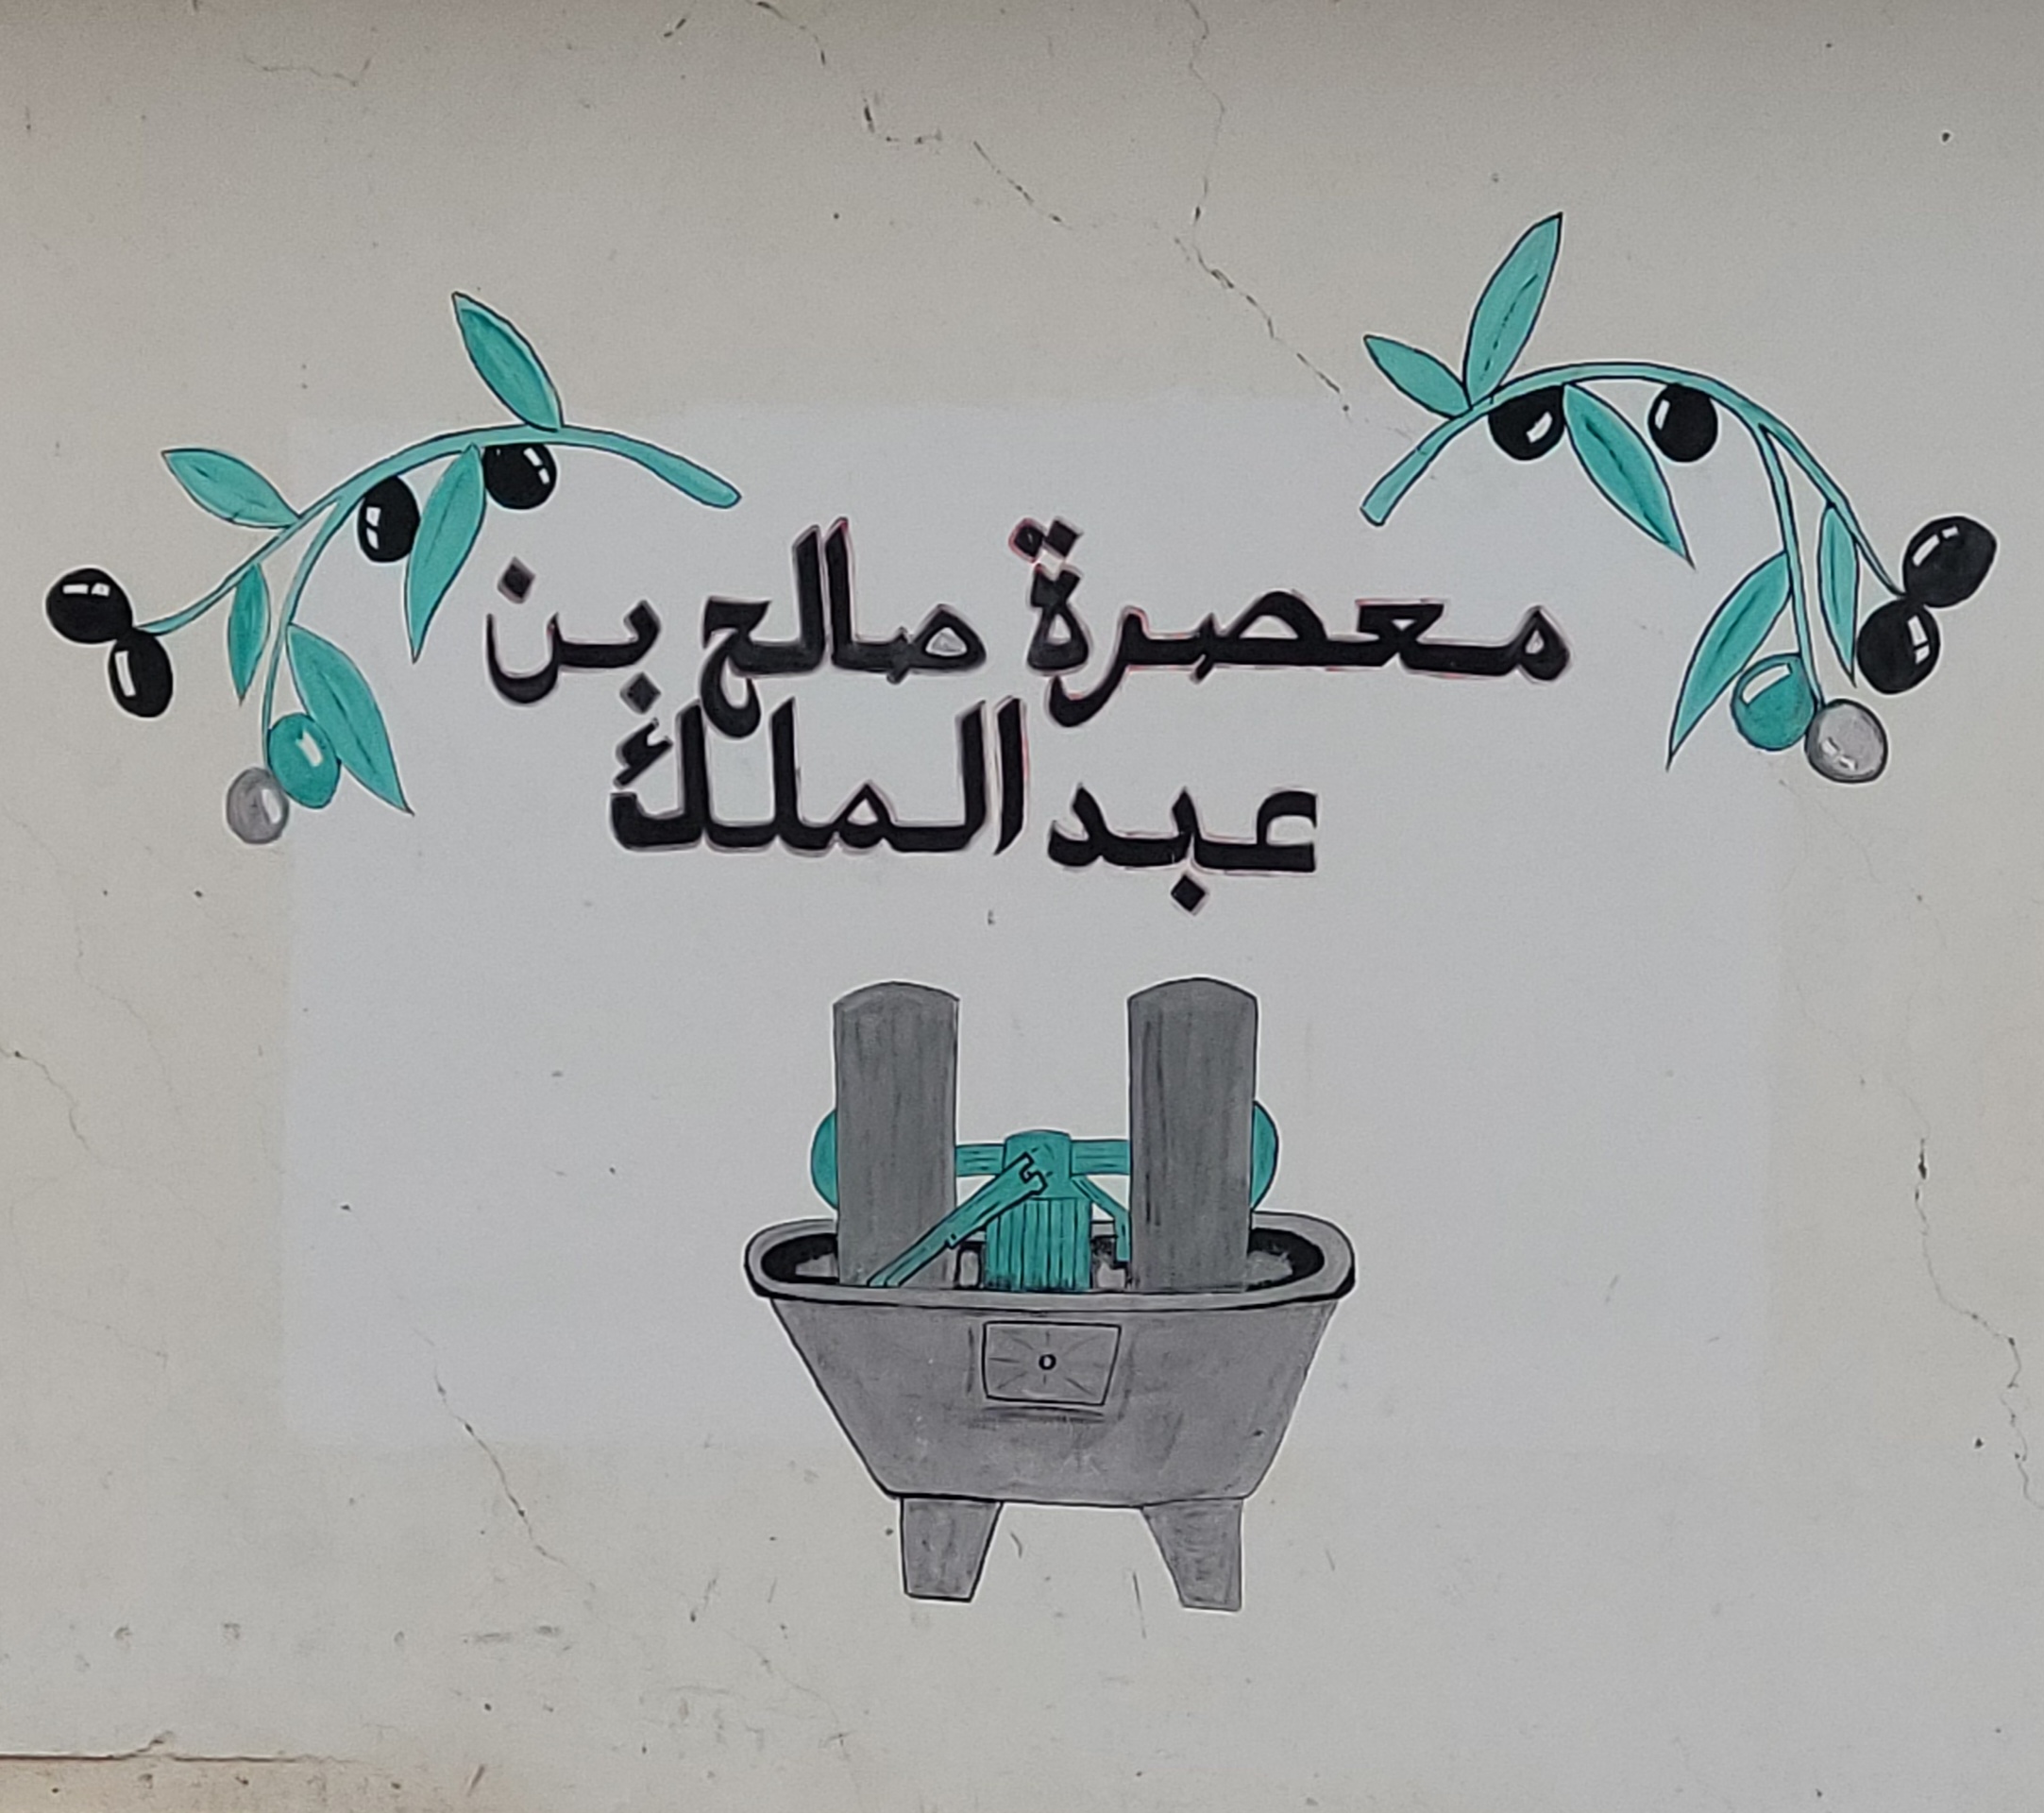 معصرة صالح بن
عبد الملك